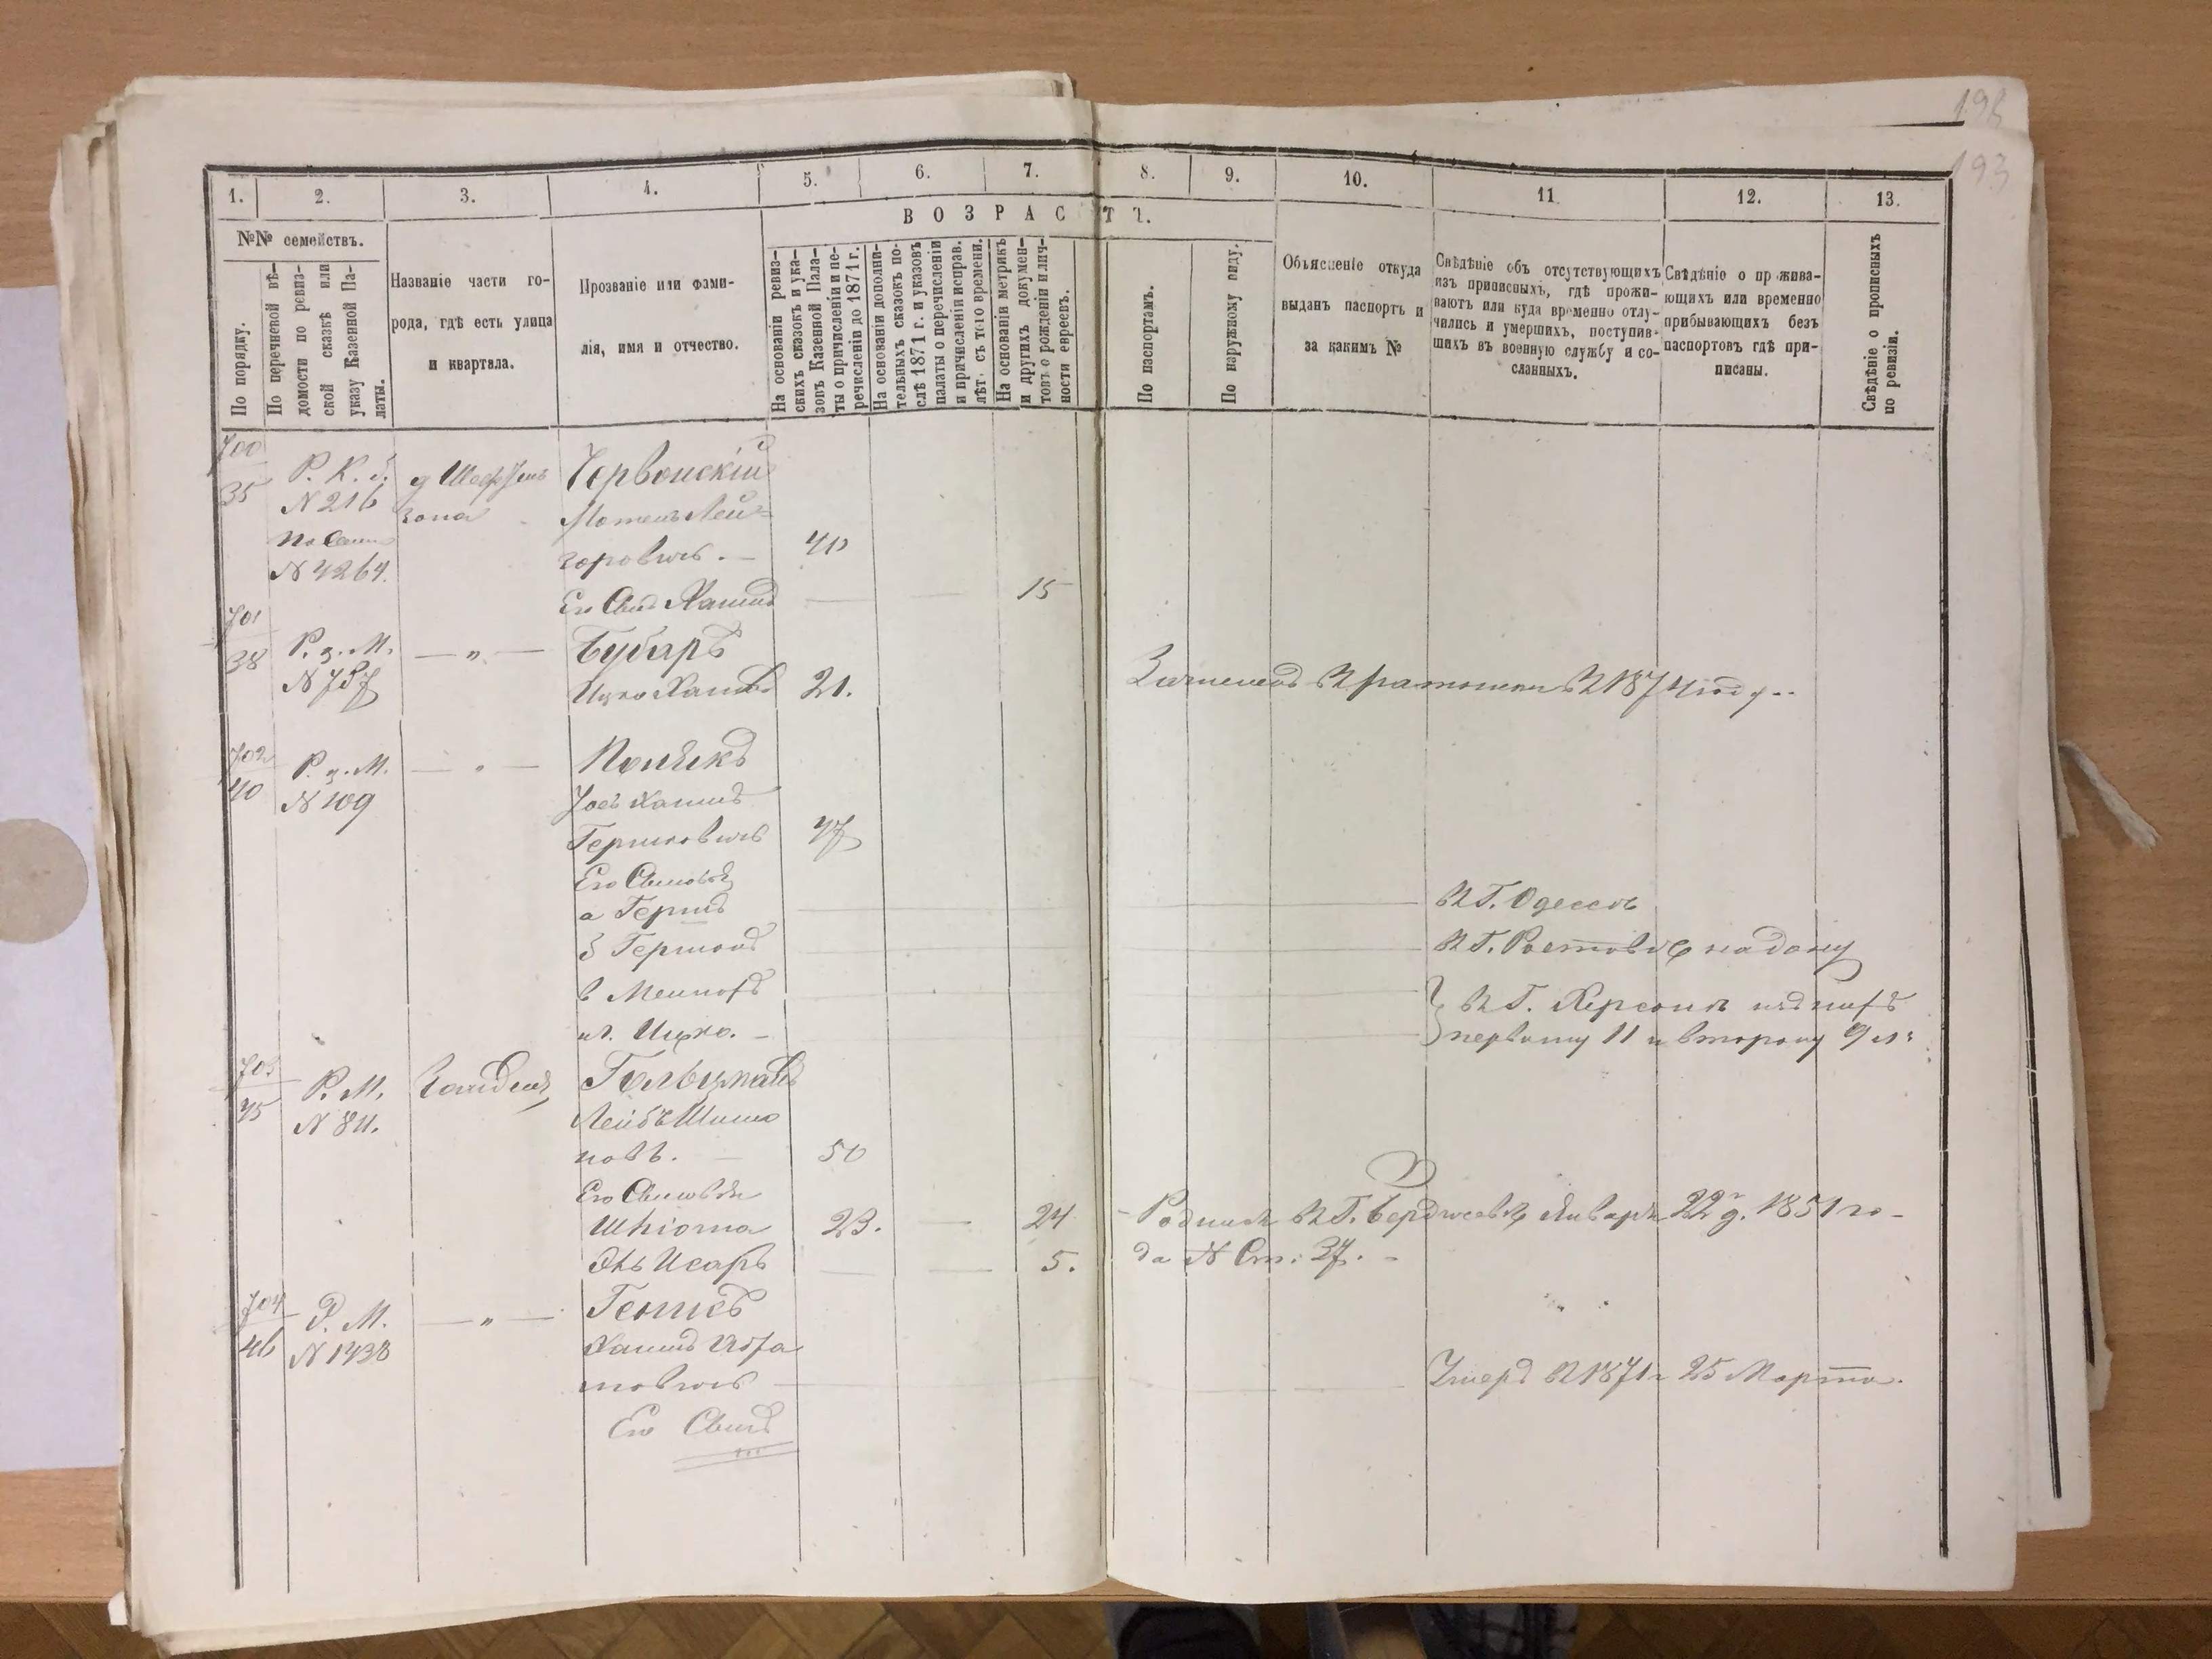 193
1. 2. 3. 4. 5. 6. 7. 8. 9. 10. 11. 12. 13.
ВОЗРАСТЪ.
№№ семействъ.
По порядку.
По перечневой вѣ-
домости по ревиз-
ской сказкѣ или
указу Казенной Па-
латы.
Названіе части го-
рода, гдѣ есть улица
и квартала.
Прозваніе или фами-
лія, имя и отчество.
На основаніи ревиз-
скихъ сказокъ и ука-
зовъ Казенной Пала-
ты о причисленіи и пе-
речисленіи до 1871 г.
На основаніи дополни-
тельныхъ сказокъ по-
слѣ 1871 г. и указовъ
палаты о перечисленіи
и причисленіи исправ.
лѣт. съ того времени.
На основаніи метрикъ
и другихъ докумен-
товъ о рожденіи и лич-
ности евреевъ.
По паспортамъ.
По наружному виду.
Объясненіе откуда
выданъ паспортъ и
за какимъ №
Свѣдѣніе объ отсутствующихъ
изъ приписныхъ, гдѣ прожи-
ваютъ или куда временно отлу-
чились и умершихъ, поступив-
шихъ въ военную службу и со-
сланныхъ.
Свѣдѣніе о прожива-
ющихъ или временно
прибывающихъ безъ
паспортовъ гдѣ при-
писаны.
Свѣдѣніе о прописныхъ
по ревизіи.
700
35 Р. К. б. Червонскій
N 216 зона
N 4264. 40
Его Сынъ Хаимъ — — 15
701
38 Р. з. М. — „ — Бубаръ
N 757 Ицко 21. въ 1874 году
702
40 Р. з. М. — „ — Полякъ
N 109 Хаимъ
Гершковичъ 47
Его Сыновья
а Герш въ Г. Одессѣ
б Гершонъ въ Г. Ростовѣ на дону
в въ Г. Херсонѣ
Ицко. — первому 11 и второму 9 л:
703
45 Р. М. Гольцманъ
N 811. Лейбъ Шимо
новъ. — 50
Его Сыновья
23. — 24 Родился въ Г. Бердичевѣ Января 22 д. 1851 го-
Исаръ — — 5. да N Ст: 37. -
704
46 Р. М. — „ — Генисъ
N 1438 Хаимъ Абра
мовичъ — Умеръ въ 1871 г 25 Марта.
Его Сынъ